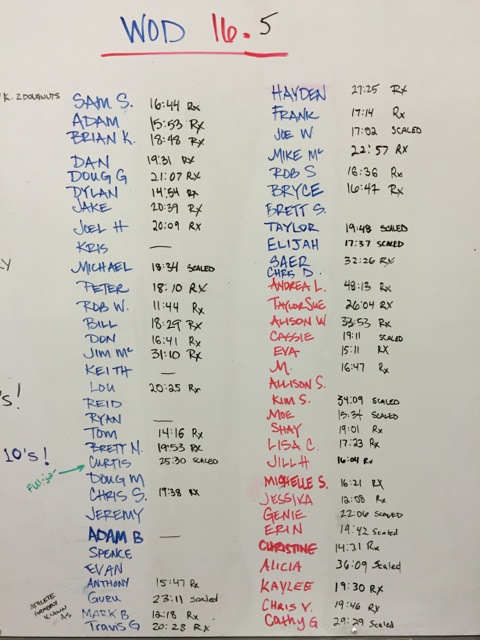 WOD 16.5
K. 2 DOUGNUTS
SAM S. 16:44 Rx
ADAM 15:53 RX
BRIAN K. 18:48 RX
DAN 19:31 RX
DOUG G 21:07 RX
DYLAN 14:54 RX
JAKE 20:39 RX
JOEL H 20:09 RX
KRIS —
MICHAEL 18:34 SCALED
PETER 18:10 RX
ROB W. 11:44 RX
BILL 18:29 RX
DON 16:41 RX
JIM Mc 31:10 RX
KEITH —
LOU 20:25 Rx
REID
RYAN —
TOM 14:16 Rx
BRETT N. 19:53 RX
CURTIS 25:30 SCALED
DOUG M
CHRIS S. 19:38 RX
JEREMY
ADAM B —
SPENCE
EVAN
ANTHONY 15:47 Rx
GURU 23:11 Scaled
MARK B 12:18 Rx
TRAVIS G 20:28 RX
HAYDEN 27:25 RX
FRANK 17:14 Rx
JOE W 17:02 SCALED
MIKE Mc 22:57 RX
ROB S 18:36 Rx
BRYCE 16:47 RX
BRETT S.
TAYLOR 19:48 SCALED
ELIJAH 17:37 SCALED
SAER 32:26 RX
CHRIS D.
ANDREA L. 48:13 RX
TAYLOR SUE 26:04 RX
ALISON W 33:53 RX
CASSIE 19:11 SCALED
EVA 15:11 RX
M. 16:47 RX
ALLISON S.
KIM S. 34:09 SCALED
MOE 15:34 SCALED
SHAY 19:01 RX
LISA C. 17:23 RX
JILL H 16:04 RX
MICHELLE S. 16:21 RX
JESSIKA 12:08 RX
GENIE 22:06 SCALED
ERIN 19:42 Scaled
CHRISTINE 14:31 Rx
ALICIA 36:09 Scaled
KAYLEE 19:30 RX
CHRIS V. 19:46 RX
Cathy G 29:29 Scaled
LY
's!
10's!
ATHLETE
FORMERLY
KNOWN
AS